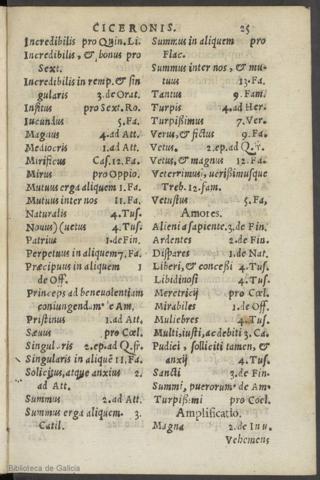 CICERONIS. 25
Incredibilis pro Quin. Li.
Incredibilis, & bonus pro
Sext.
Incredibilis in remp. & sin
gularis 3. de Orat.
Insitus pro Sext. Ro.
Iucundus 5. Fa.
Magnus 4. ad Att.
Mediocris 1. ad Att.
Mirificus Cas. 12. Fa.
Mirus pro Oppio.
Mutuus erga aliquem 1. Fa.
Mutuus inter nos 11. Fa.
Naturalis 4. Tus.
Nouus) (uetus 4. Tus.
Patrius 1. de Fin.
Perpetuus in aliquem 7. Fa.
Præcipuus in aliquem 1
de Off.
Princeps ad beneuolentiam
coniungendam è Am.
Pristinus 1. ad Att.
Sæuus pro Cœl.
Singularis 2. ep. ad Q. fr.
Singularis in aliquē 11. Fa.
Solicitus, atque anxius 2.
ad Att.
Summus 2. ad Att.
Summus erga aliquem 3.
Catil.
Summus in aliquem pro
Flac.
Summus inter nos, & mu-
tuus 13. Fa.
Tantus 9. Fam.
Turpis 4. ad Her.
Turpißimus 7. Ver.
Verus, & fictus 9. Fa.
Vetus. 2. ep. ad Q. fr.
Vetus, & magnus 12. Fa.
Veterrimus, uerißimusque
Treb. 12. fam.
Vetustus 5. Fa,
Amores.
Alieni a sapiente. 3. de Fin.
Ardentes 2. de Fin.
Dispares 1. de Nat.
Liberi, & conceßi 4. Tus.
Libidinosi 4. Tus.
Meretricij pro Cœl.
Mirabiles 1. de Off.
Muliebres 4. Tus.
Multi, iusti, ac debiti 3. Ca.
Pudici, solliciti tamen, &
anxij 4. Tus.
Sancti 3. de Fin.
Summi, puerorum de Am.
Turpißimi pro Coel.
Amplificatio.
Magna 2. de Inu.
Vehemens
Biblioteca de Galicia